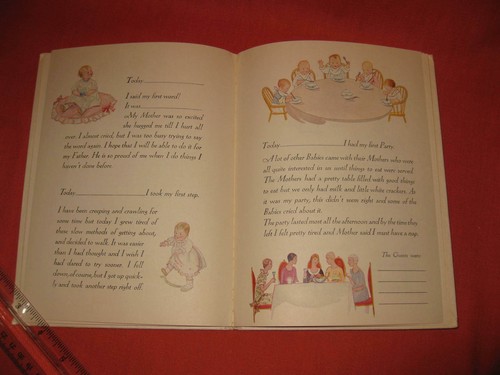 Today
I said my first word!
It was
My Mother was so excited
she hugged me till I hurt all
over. I almost cried, but I was too busy trying to say
the word again. I hope that I will be able to do it for
my Father. He is so proud of me when I do things I
haven't done before.
Today I took my first step.
I have been creeping and crawling for
some time but today I grew tired of
these slow methods of getting about,
and decided to walk. It was easier
than I had thought and I wish I
had dared to try sooner. I fell
down, of course, but I got up quick-
ly and took another step right off.
Today I had my first Party.
A lot of other Babies came with their Mothers who were
all quite interested in us until things to eat were served.
The Mothers had a pretty table filled with good things
to eat but we only had milk and little white crackers. As
it was my party, this didn't seem right and some of the
Babies cried about it.
The party lasted most all the afternoon and by the time they
left I felt pretty tired and Mother said I must have a nap.
The Guests were: